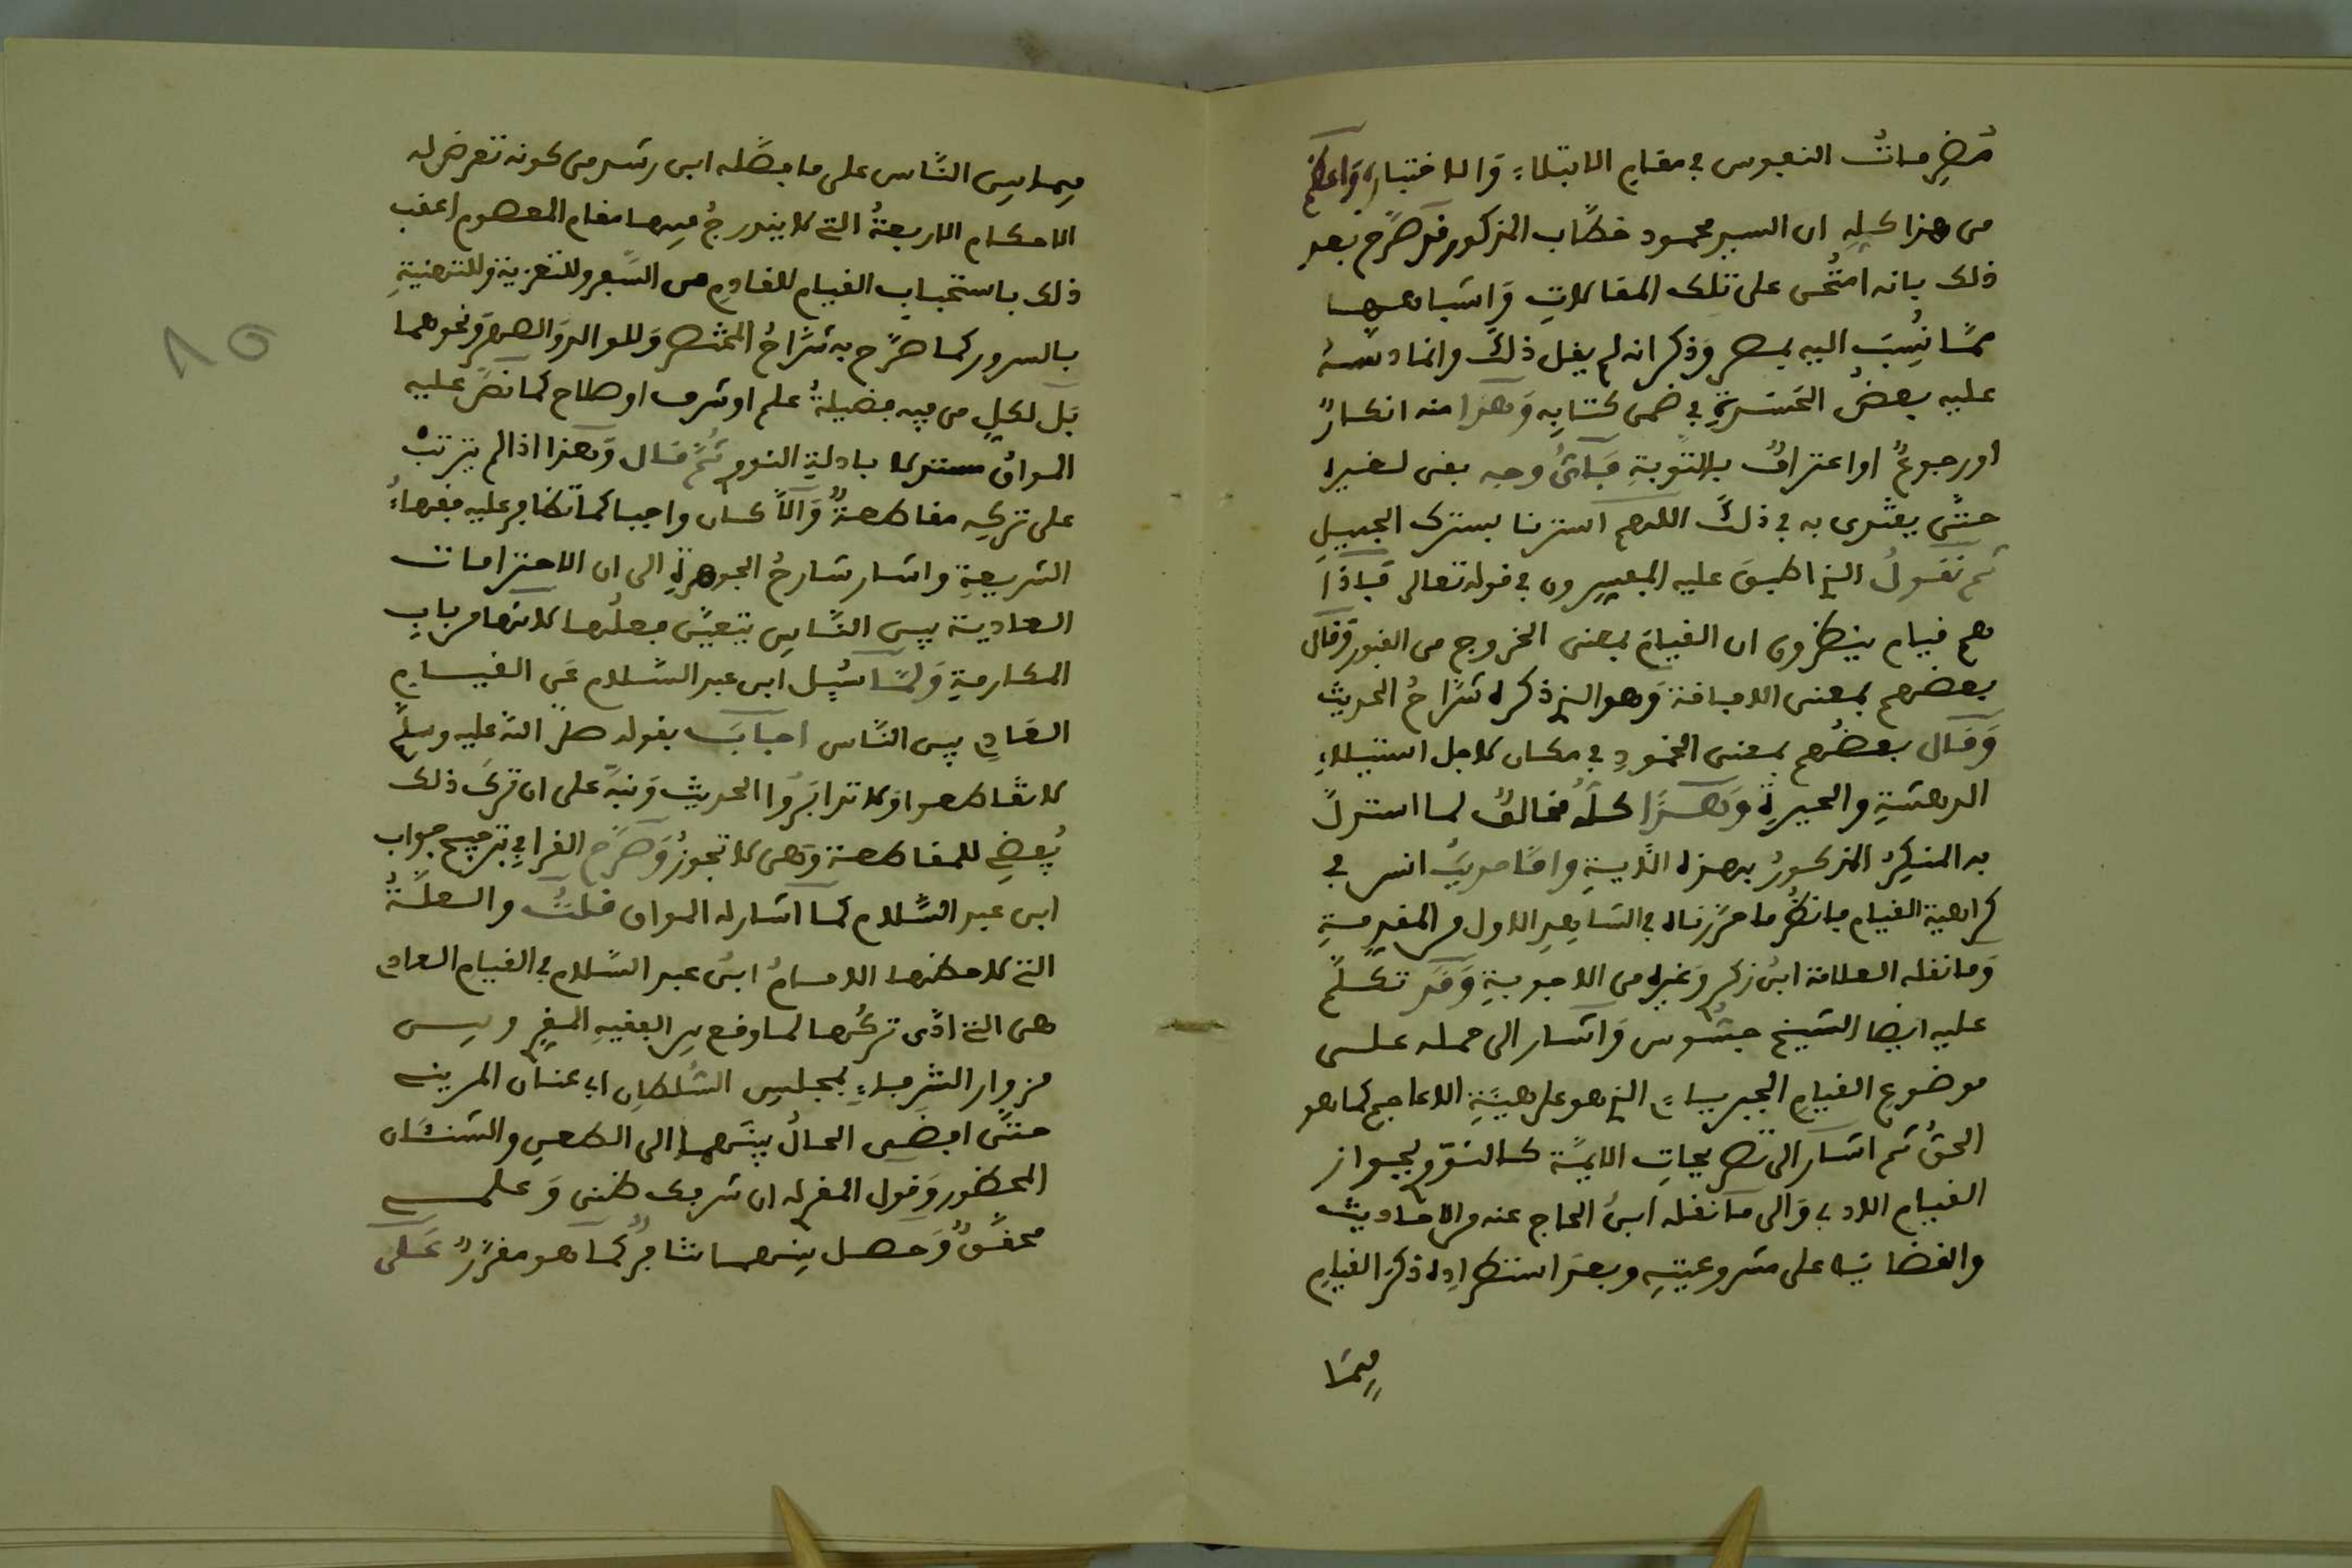 مُضْمراتُ النفوس في مقامِ الابتلاءِ وَالاختبارِ وَاعظم
من هذا كلهِ ان السيد محمود خطَّاب المذكور قد صرَّح بعد
ذلك بانه امتُحن على تلك المقالاتِ وَاشباهها
ممَّا نُسِبَ اليه بمصر وَذكر انه لم يقل ذلكَ وانما دسَّهُ
عليه بعضُ الحسَدةِ في ضمن كتابِهِ وَهذا منه انكارٌ
اورجوعٌ او اعترافٌ بالتَّوبةِ فبأىِّ وجه بقى لغيره
حتَّى يقتدى به في ذلكَ اللهم استرنا بسترك الجميلِ
ثم نَقُولُ الذي اطبقَ عليه المفسِرون في قوله تعالى فَإذا
هم قيام ينظرون ان القيامَ بمعنى الخروج من القبور وَقال
بعضهم بمعنى الافاقة وَهو الذي ذكره شرَّاحُ الحديث
وَقَال بعضُهم بمعنى الخمودِ في مكان لاجل استيلاءِ
الدهشةِ والحيرةِ وَهذا كلُّه مخالفٌ لما استدلَّ
به المنكِرُ المذكورُ بهذه الآيةِ وامَّا حديثُ انس في
كراهية القيام فانظُر ما حرَّرناه في الشاهِدِ الاول من المقدِمةِ
وَما نقله العلامة ابنُ زكري وَغيره من الاجوبةِ وَقَد تكلَّم
عليه ايضا الشيخ جسُّوس وَاشار الى حمله على
موضوع القيامِ الجبريِّ الذي هو على هيئَةِ الاعاجم كما هو
الحقُّ ثم اشار الى تصريحاتِ الايمَّة كالنَّوَوي بجواز
القيام الادبي وَالى ما نقله ابنُ الحاج عنه من الاحاديث
والقضايا على مشروعيتِهِ وبعدَ استطرادِه ذكرَ القيامِ
فِيمَا
فيما بين النَّاس على ما فصَّله ابن رشد من كونه تعرض له
الاحكام الاربعةُ التي لا يندرجُ فيها مقام المعصوم اعقب
ذلك باستحبابِ القيام للقادِم من السَّفر وللتعزية وللتهنيةِ
بالسرور كما صرَّح به شرَّاحُ المختصر وَللوالد وَالصهر وَنحوهما
بَل لكلِ من فيه فضيلةُ علم او شرف او صلاح كما نصَّ عليه
المواقُ مستدلا بادلةِ النووى ثُمَّ قال وَهذا اذا لم يترتبْ
على تركِهِ مقاطعةٌ وَالاَّ كان واجبا كما تظافر عليه فقهاءُ
الشريعةِ واشار شارحُ الجوهرةِ الى ان الاحترامات
العادية بين النَّاسِ يتعيَّن فعلُها لانها من بابِ
المكارمةِ وَلمَّا سُئِل ابن عبد السَّلام عَن القيامِ
العَام بين النَّاس اجابَ بقوله صلَّى اللهُ عليه وسلَّم
لا تقاطعوا وَلا تدابَرُوا الحديث وَنبَّه على ان تركَ ذلك
يُفضِي للمقاطعة وَهى لا تجوزُ وَصرَّح القرافي بترجيح جواب
ابن عبد السَّلام كما اشار له المواق قلتُ والعلَّةُ
التي لاحظها الامامُ ابنُ عبد السَّلام في القيام العام
هى التي ادَّى تركُها لما وقع بين الفقيهِ المقرِى وبين
مزوارِ الشرفاءِ بمجلسِ السُلطان ابي عنان المرينى
حتَّى افضى الحالُ بينهما الى الطعنِ والشنئَان
المحظور وَقول المقرى له ان شرفك ظنى وَعلمى
محقَّقٌ وَحصل بينهما تنافرٌ كما هو مقرَّرٌ عَلَى